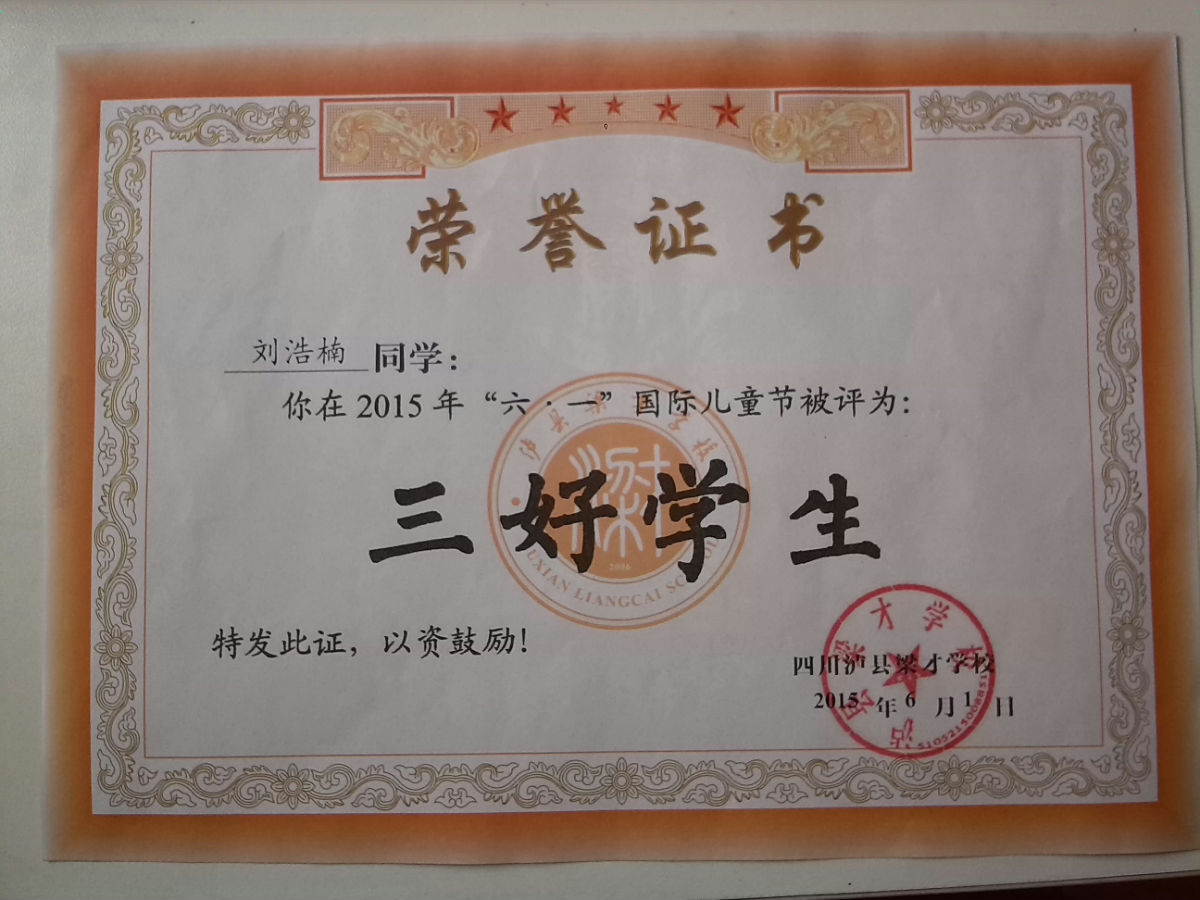 荣誉证书
刘浩楠 同学：
你在2015年“六·一”国际儿童节被评为：
泸县梁才学校
三好学生
2006
LUXIAN LIANGCAI SCHOOL
特发此证，以资鼓励！
四川泸县梁才学校
2015年6月1日
泸县梁才学校